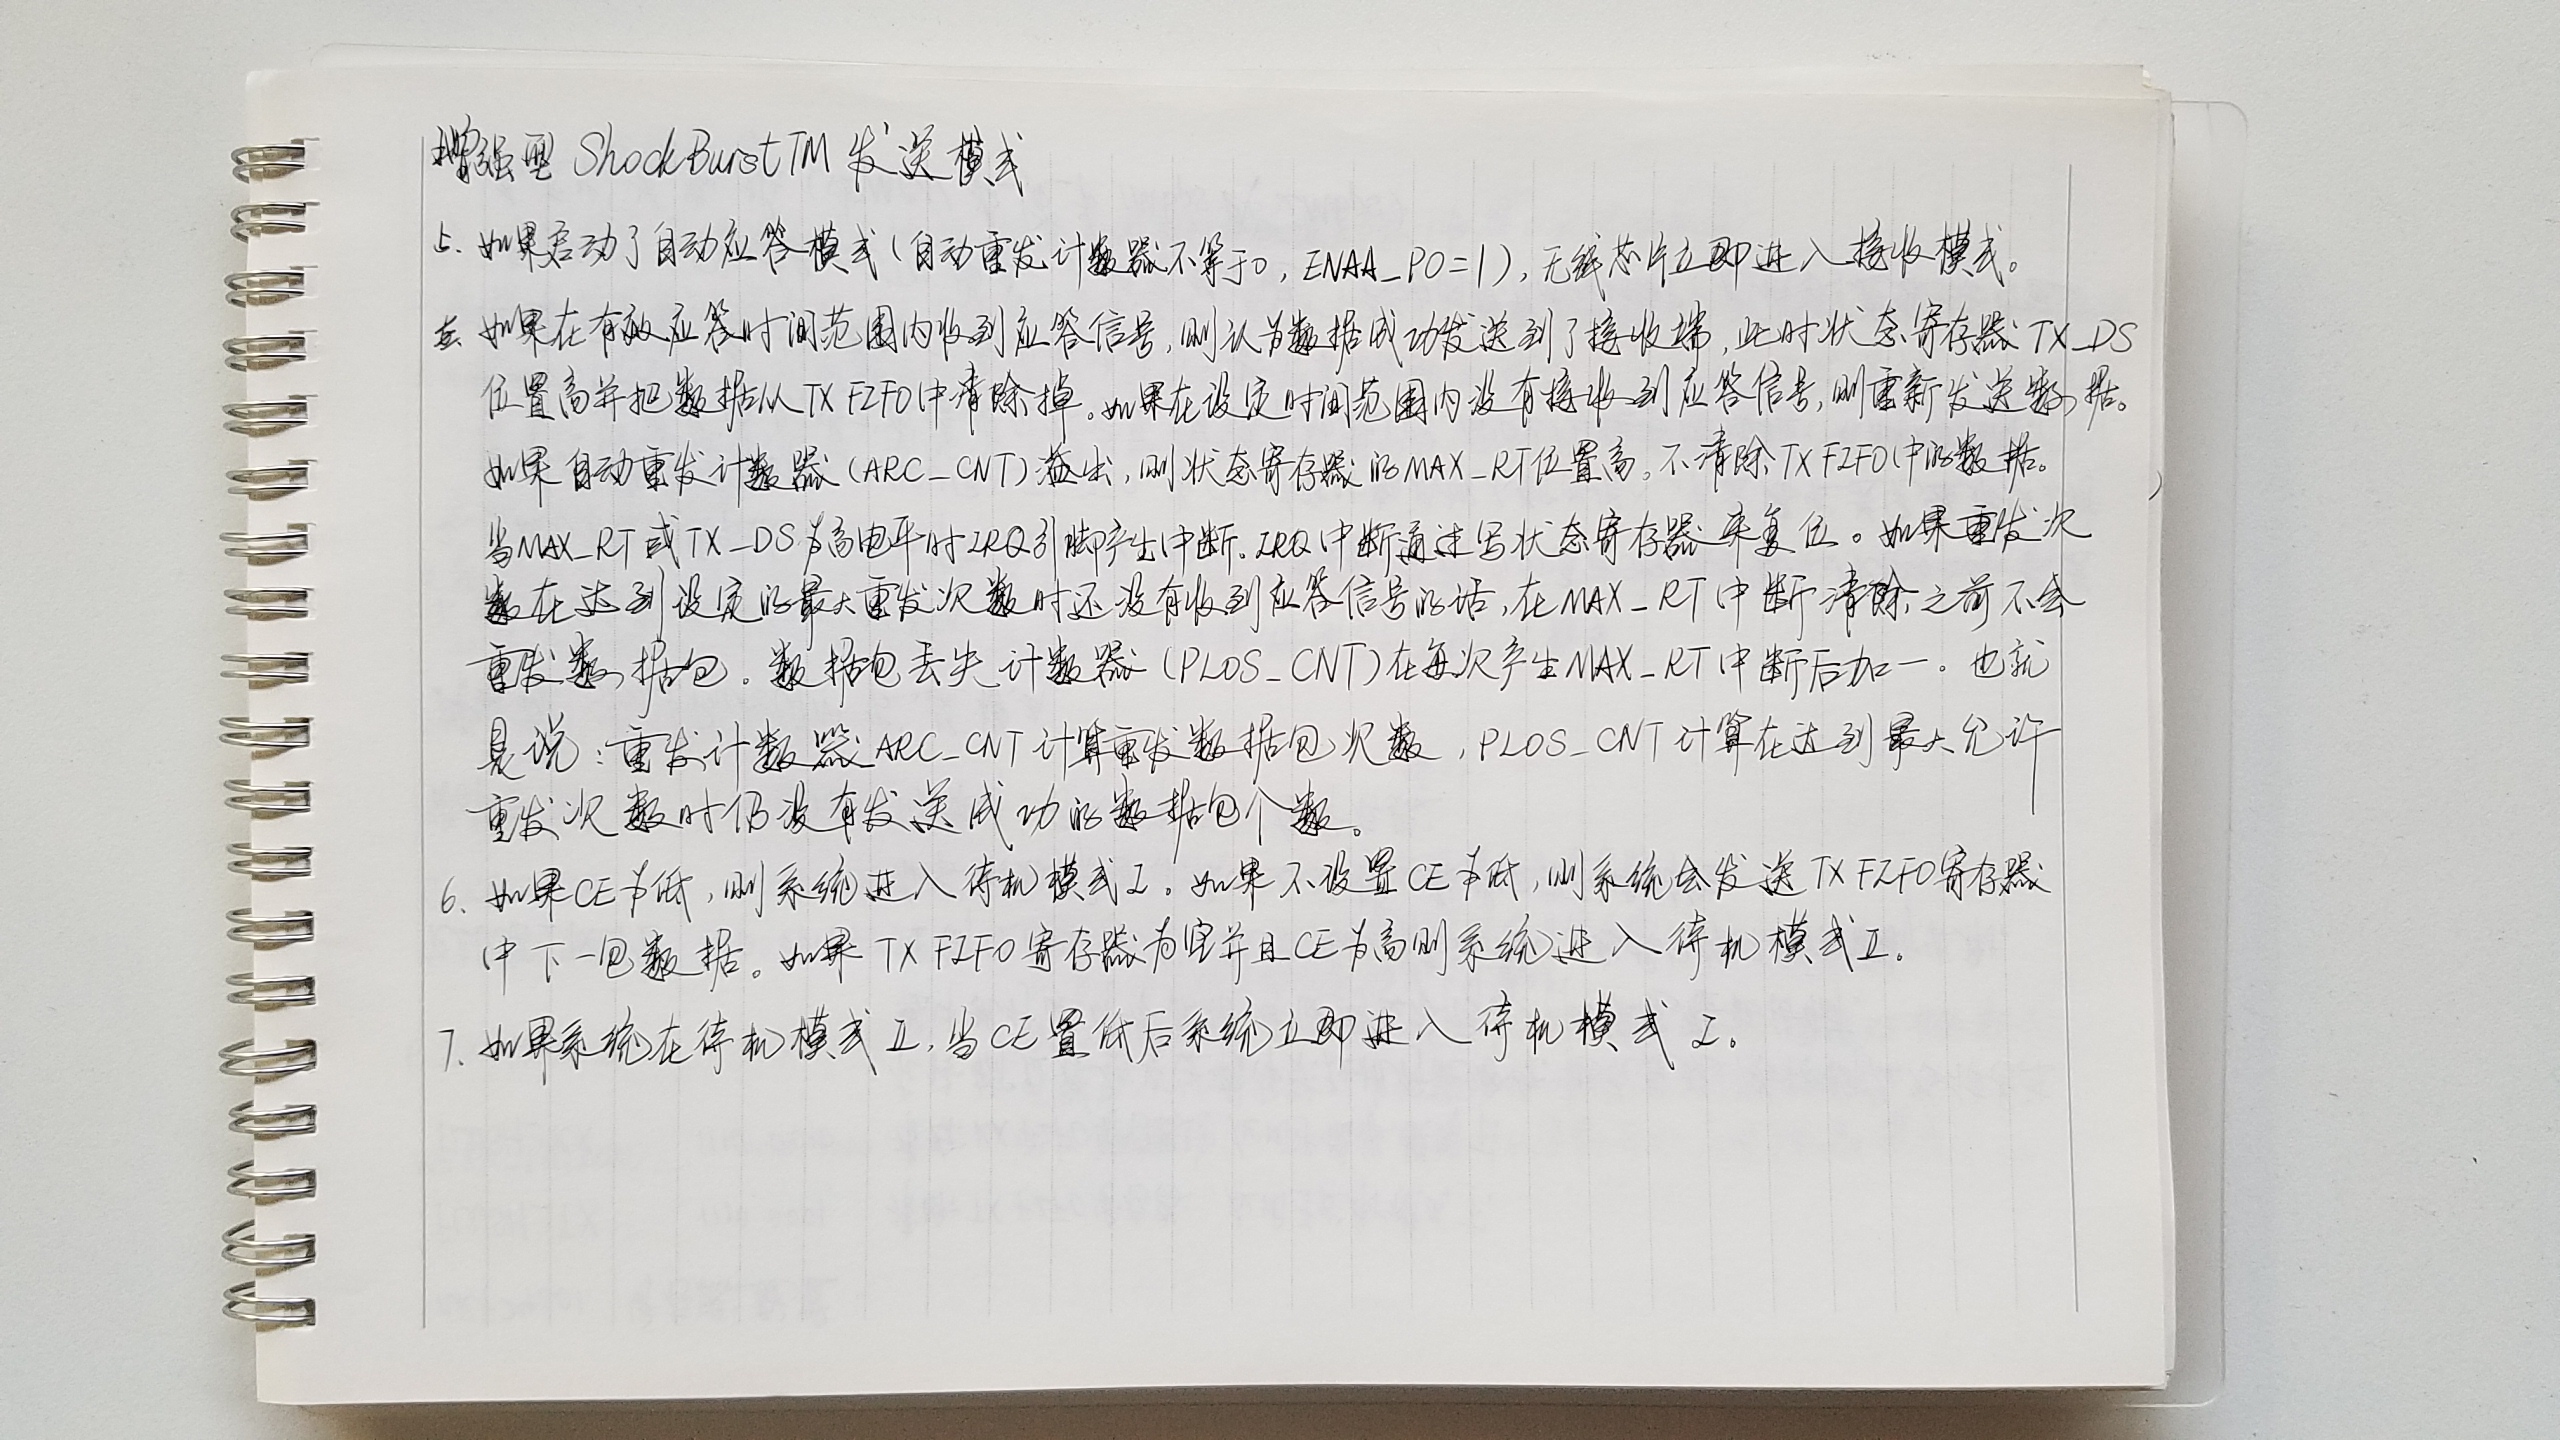 增强型 ShockBurstTM 发送模式
5. 如果启动了自动应答模式(自动重发计数器不等于0, ENAA_P0=1), 无线芯片立即进入接收模式。
如果在有效应答时间范围内收到应答信号, 则认为数据成功发送到了接收端, 此时状态寄存器 TX_DS
位置高并把数据从TX FIFO中清除掉。如果在设定时间范围内没有接收到应答信号, 则重新发送数据。
如果自动重发计数器 (ARC_CNT) 溢出, 则状态寄存器的MAX_RT位置高。不清除TX FIFO中的数据。
当MAX_RT或TX_DS为高电平时IRQ引脚产生中断。IRQ中断通过写状态寄存器来复位。如果重发次
数在达到设定的最大重发次数时还没有收到应答信号的话, 在MAX_RT中断清除之前不会
重发数据包。数据包丢失计数器 (PLOS_CNT)在每次产生MAX_RT中断后加一。也就
是说: 重发计数器ARC_CNT计算重发数据包次数, PLOS_CNT计算在达到最大允许
重发次数时仍没有发送成功的数据包个数。
6. 如果CE为低, 则系统进入待机模式I。如果不设置CE为低, 则系统会发送TX FIFO寄存器
中下一包数据。如果TX FIFO寄存器为空并且CE为高则系统进入待机模式II。
7. 如果系统在待机模式II, 当CE置低后系统立即进入待机模式I。